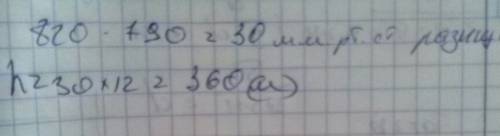 820 - 790 = 30 мм рт. ст разниц
h = 30 × 12 = 360 (м)